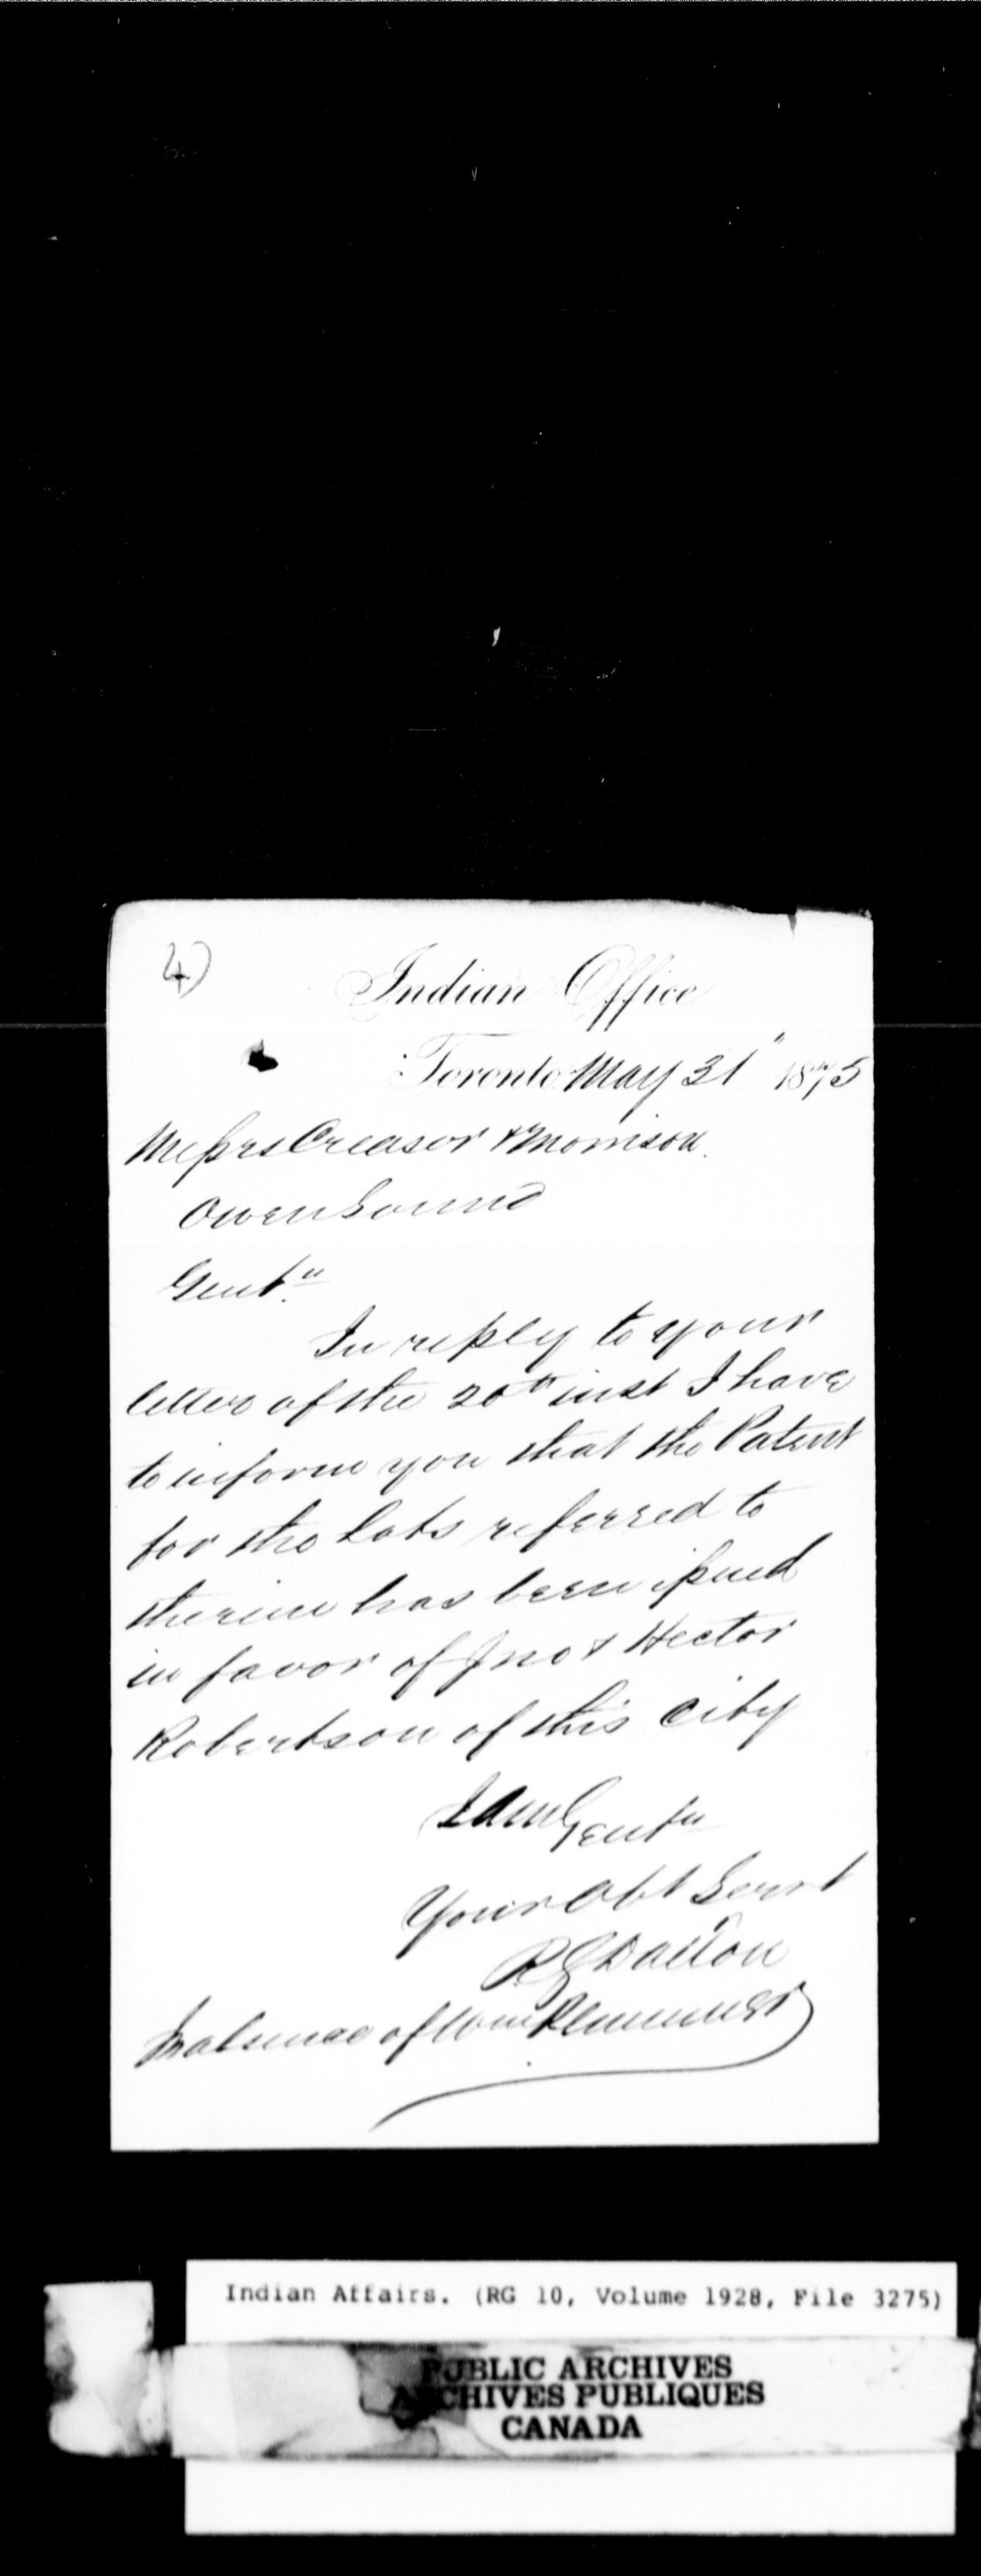 4)
Indian Office
Toronto May 31" 1875
Messrs Creasor & Morrison.
Owen Sound
Gentn
In reply to your
letter of the 20th inst I have
to inform you that the Patent
for the Lots referred to
therein has been issued
in favor of Jno & Hector
Robertson of this City
I am Gentn
Your Obt Servt
R G Dalton
In absence of Wm Plummer
Indian Affairs. (RG 10, Volume 1928, File 3275)
PUBLIC ARCHIVES
ARCHIVES PUBLIQUES
CANADA